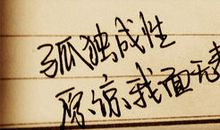 孤独成性
原谅我面无表